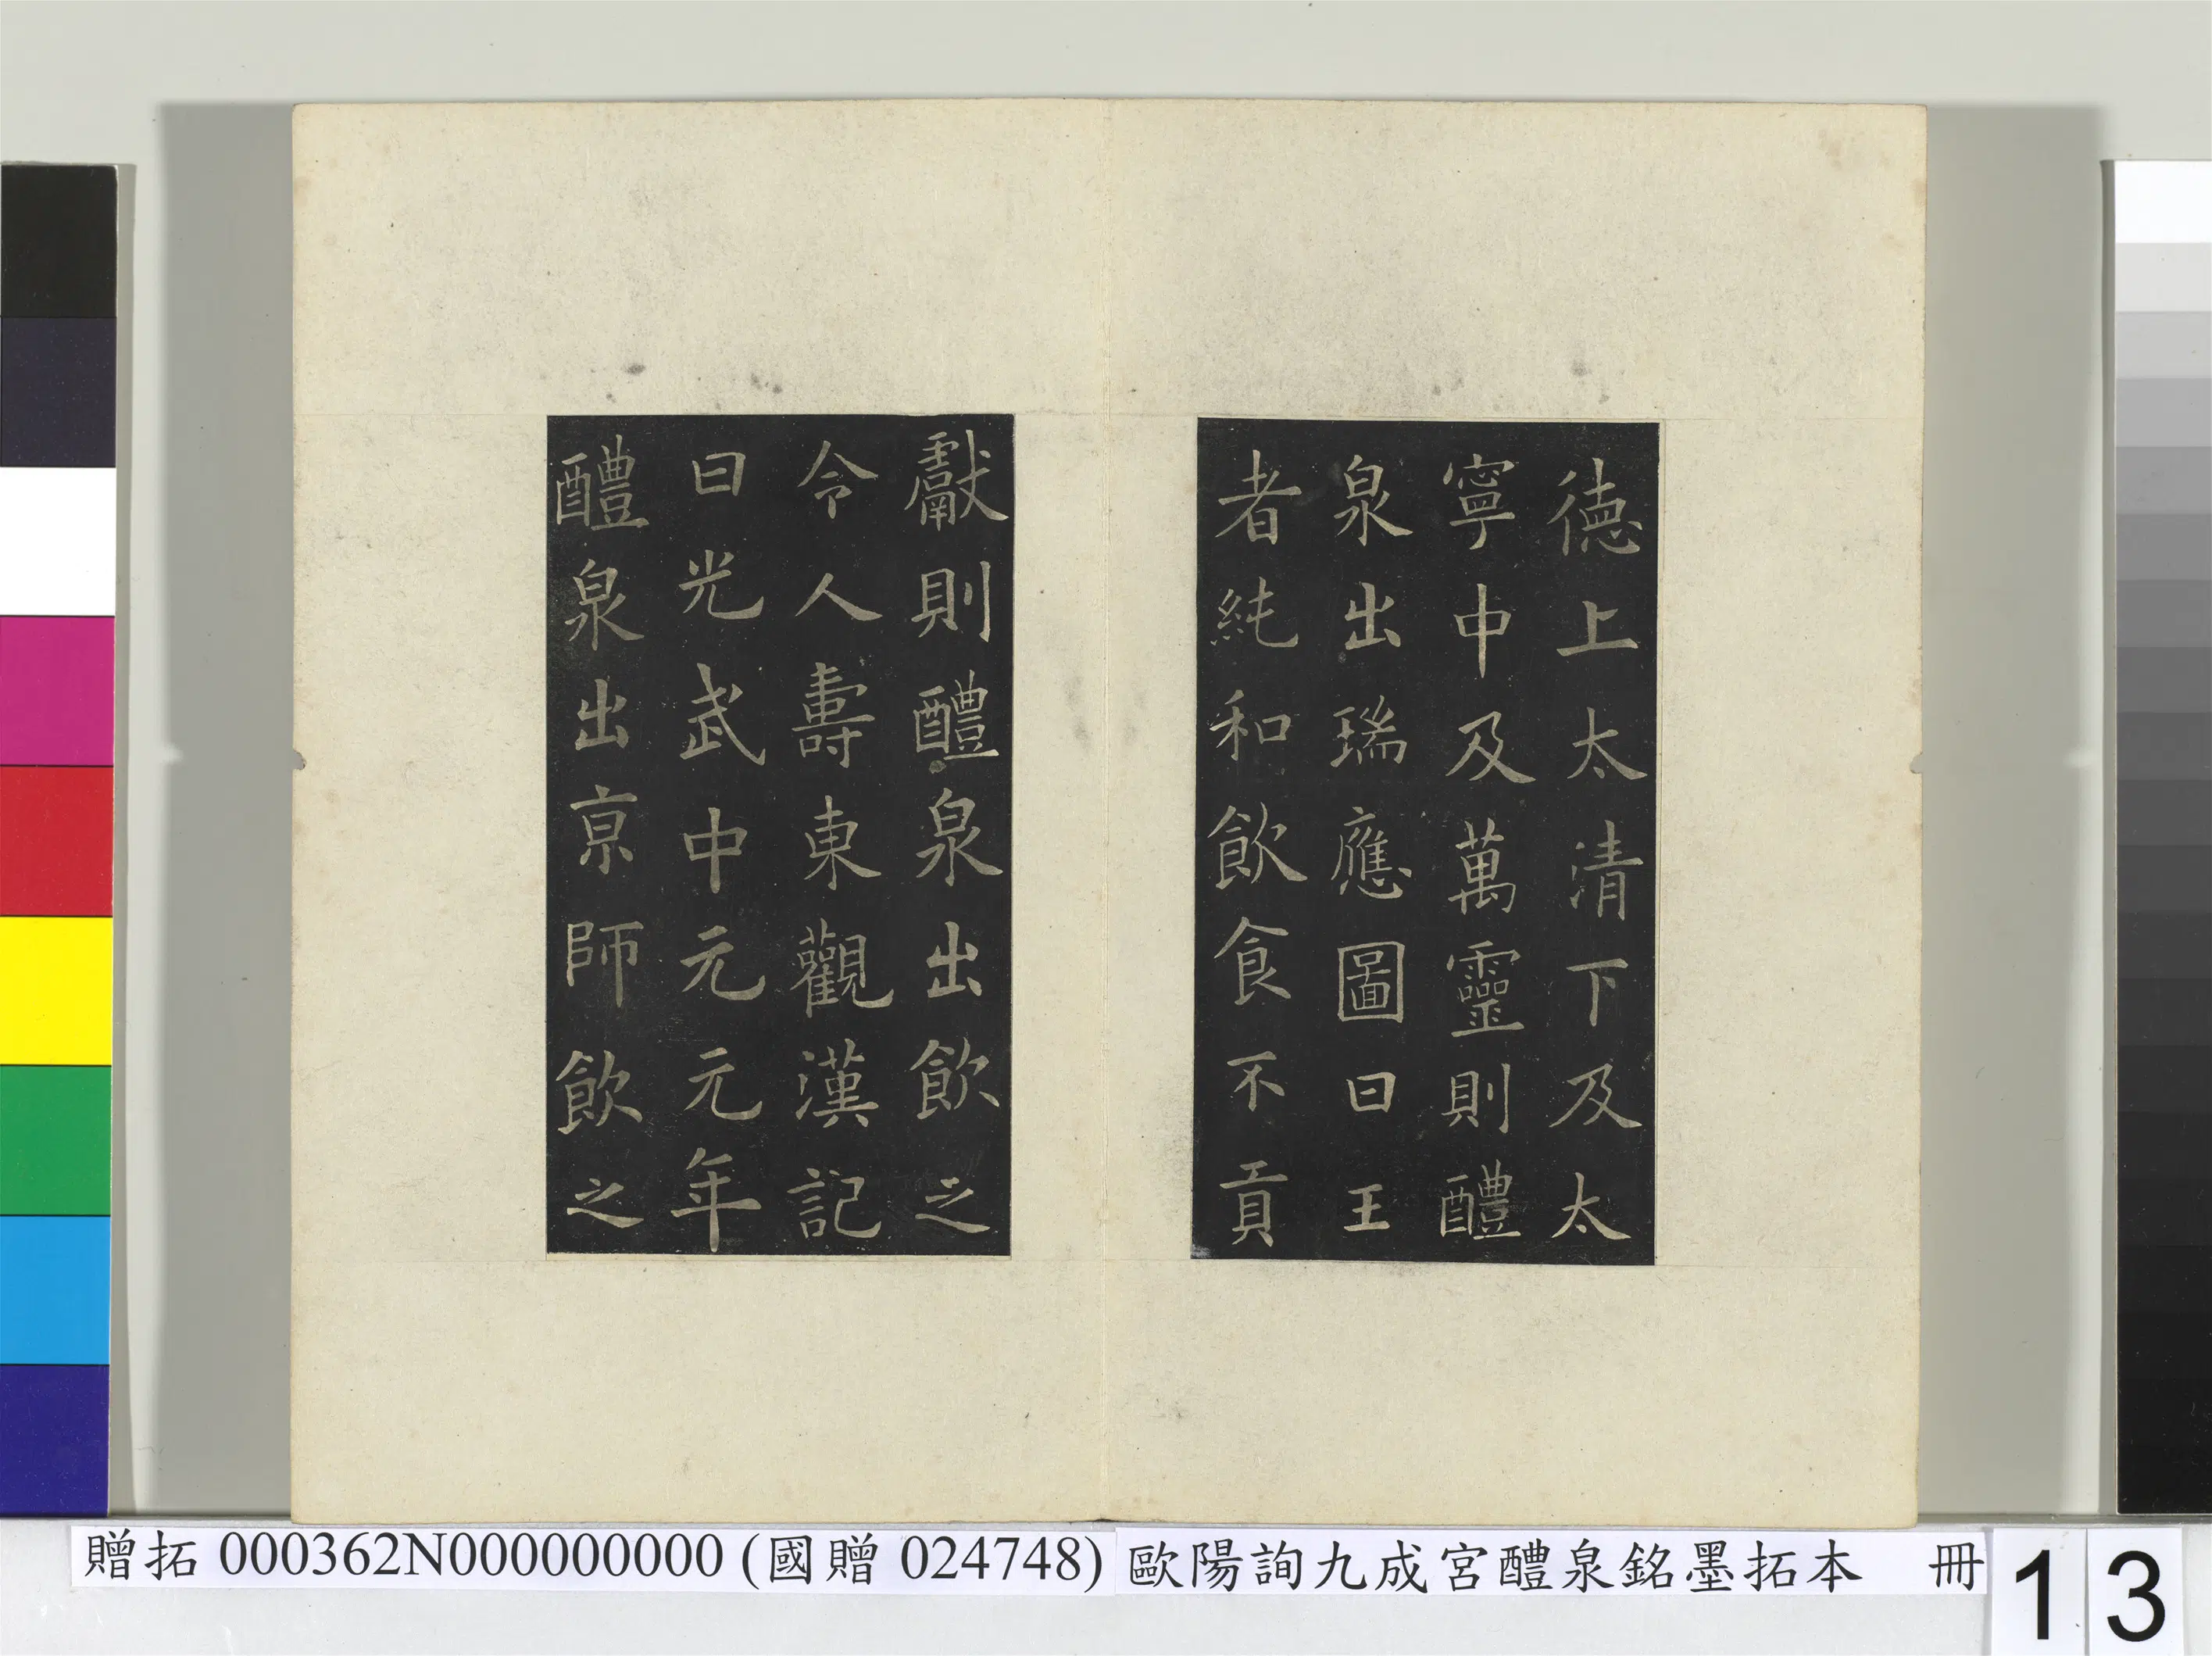 德上太清下及太
寧中及萬靈則醴
泉出瑞應圖曰王
者純和飲食不貢
獻則醴泉出飲之
令人壽東觀漢記
曰光武中元元年
醴泉出京師飲之
贈拓 000362N000000000 (國贈 024748) 歐陽詢九成宮醴泉銘墨拓本 冊 13